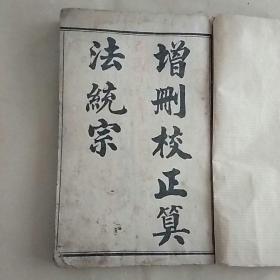 增刪校正算
法統宗